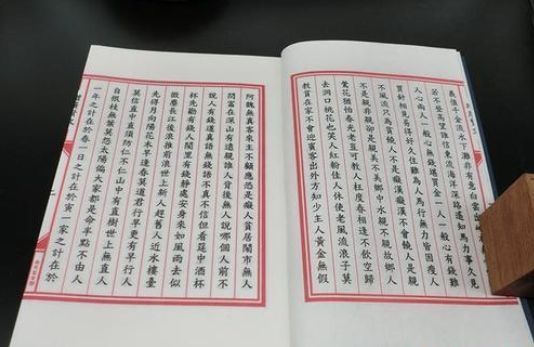 義值千金流水下灘非有意白雲出
若不登高望焉信東流海洋深路遙知馬力事久見
人心兩人一般心無錢堪買金一人一般心有錢難
買針相見易得好久住難為人馬行無力皆因瘦人
不風流只為貧饒人不是癡漢癡漢不會饒人是親
不是親非親卻是親美不美鄉中水親不親故鄉人
鶯花猶怕春光老豈可教人枉度春相逢不飲空歸
去洞口桃花也笑人紅粉佳人休使老風流浪子莫
教貧在家不會迎賓客出外方知少主人黃金無假
阿魏無真客來主不顧應恐是癡人貧居鬧市無人
問富在深山有遠親誰人背後無人說哪個人前不
說人有錢道真語無錢語不真不信但看筵中酒杯
杯先勸有錢人鬧里有錢靜處安身來如風雨去似
微塵長江後浪推前浪世上新人趕舊人近水樓臺
先得月向陽花木早逢春莫道君行早更有早行人
莫信直中直須防仁不仁山中有直樹世上無直人
自恨枝無葉莫怨太陽偏大家都是命半點不由人
一年之計在於春一日之計在於寅一家之計在於